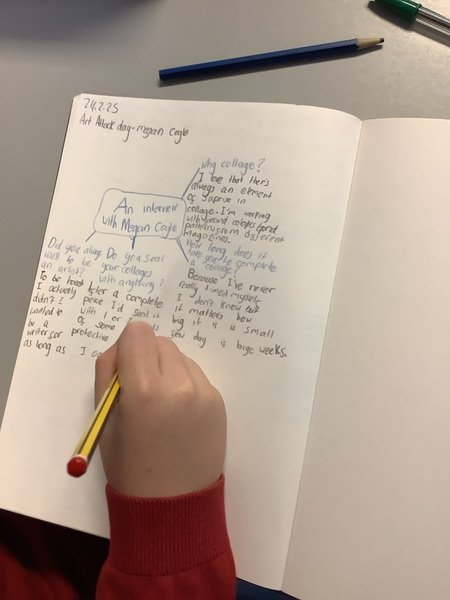 24.2.25
Art Attack day - megan Coyle
An interview
with Megan Coyle
why collage?
I love that there's
always an element
of suprise in
collage. I'm working
with weard colages and
patterns from different
magazines.
How long does it
take you to complete
a collage?
Because I've never
really timed myself
I don't know but
it matters how
big it is is small
day is large weeks.
Do you seal
your collages
with anything?
After a complete
peice I'd seal it
with 1 or
of some
protective
Did you always
want to be
an artist?
To be honest
I actually
didn't I
wanted to
be a
writer for
as long as I